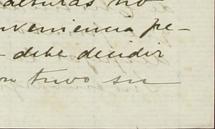 alturas no
nveniencia pe-
debe decidir
on tuvo su